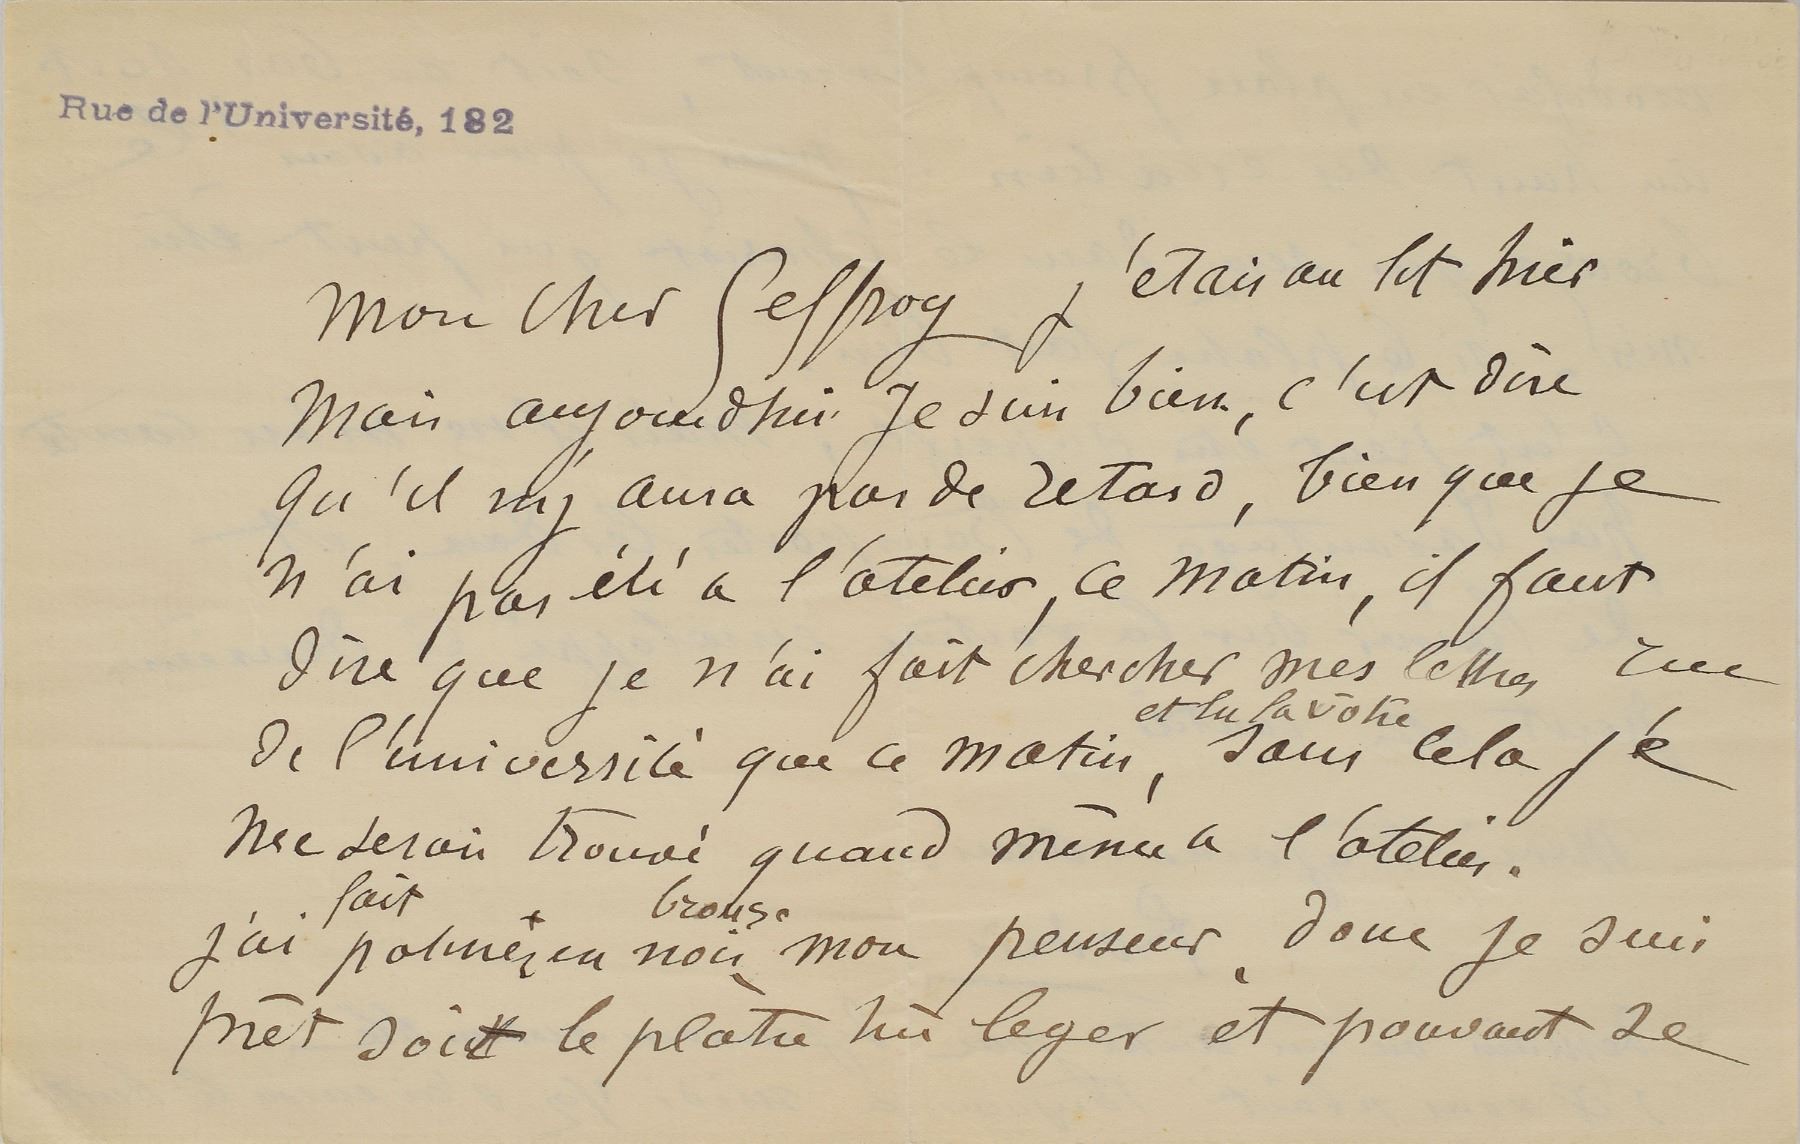 Rue de l'Université, 182
Mon cher Geffroy j'étais au lit hier
Mais aujourdhui je suis bien, c'est dire
qu'il n'y aura pas de retard, bien que je
n'ai pas été a l'atelier, ce matin, il faut
dire que je n'ai fait chercher mes lettres rue
et lu la vôtre
de l'université que ce matin, sans cela je
me serais trouvé quand même a l'atelier.
fait bronze
j'ai patiner en noir mon penseur, donc je suis
prêt soit le plâtre très leger et pouvant se